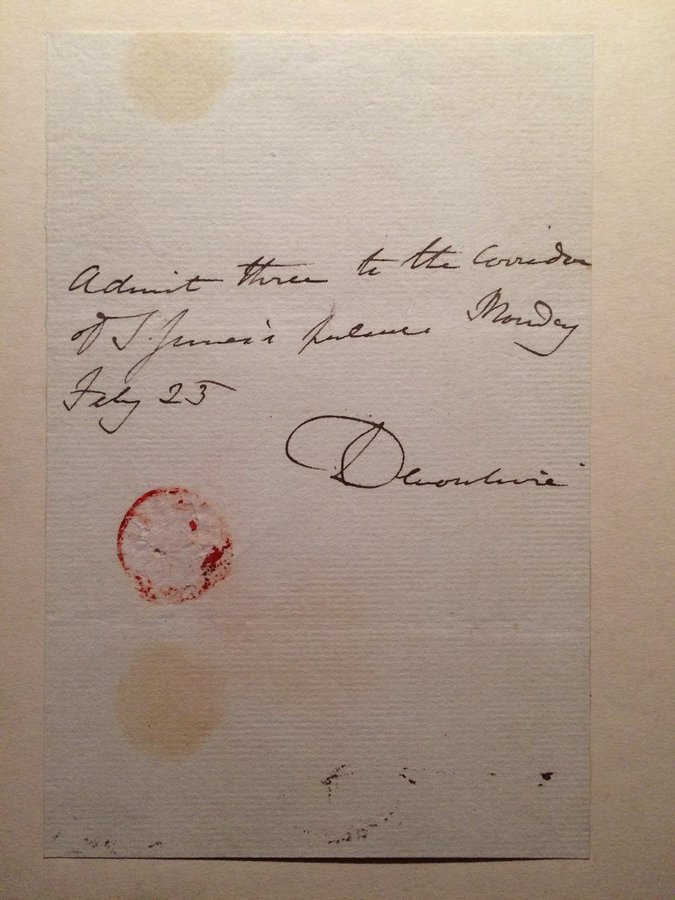 Admit three to the Corridor
of St. James's palace Monday
Feby 23
Devonshire